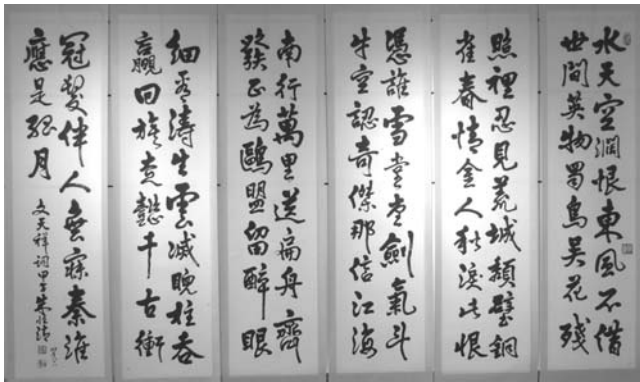 水天空濶恨東風不借
世間英物蜀鳥吳花殘
照裡忍見荒城頹壁銅
雀春情金人秋淚此恨
憑誰雪堂堂劍氣斗
牛空認奇傑那信江海
南行萬里送扁舟齊
發正為鷗盟留醉眼
細看濤生雲滅睨柱吞
嬴回旗走懿千古衝
冠髮伴人無寐秦淮
應是孤月
文天祥詞甲子朱